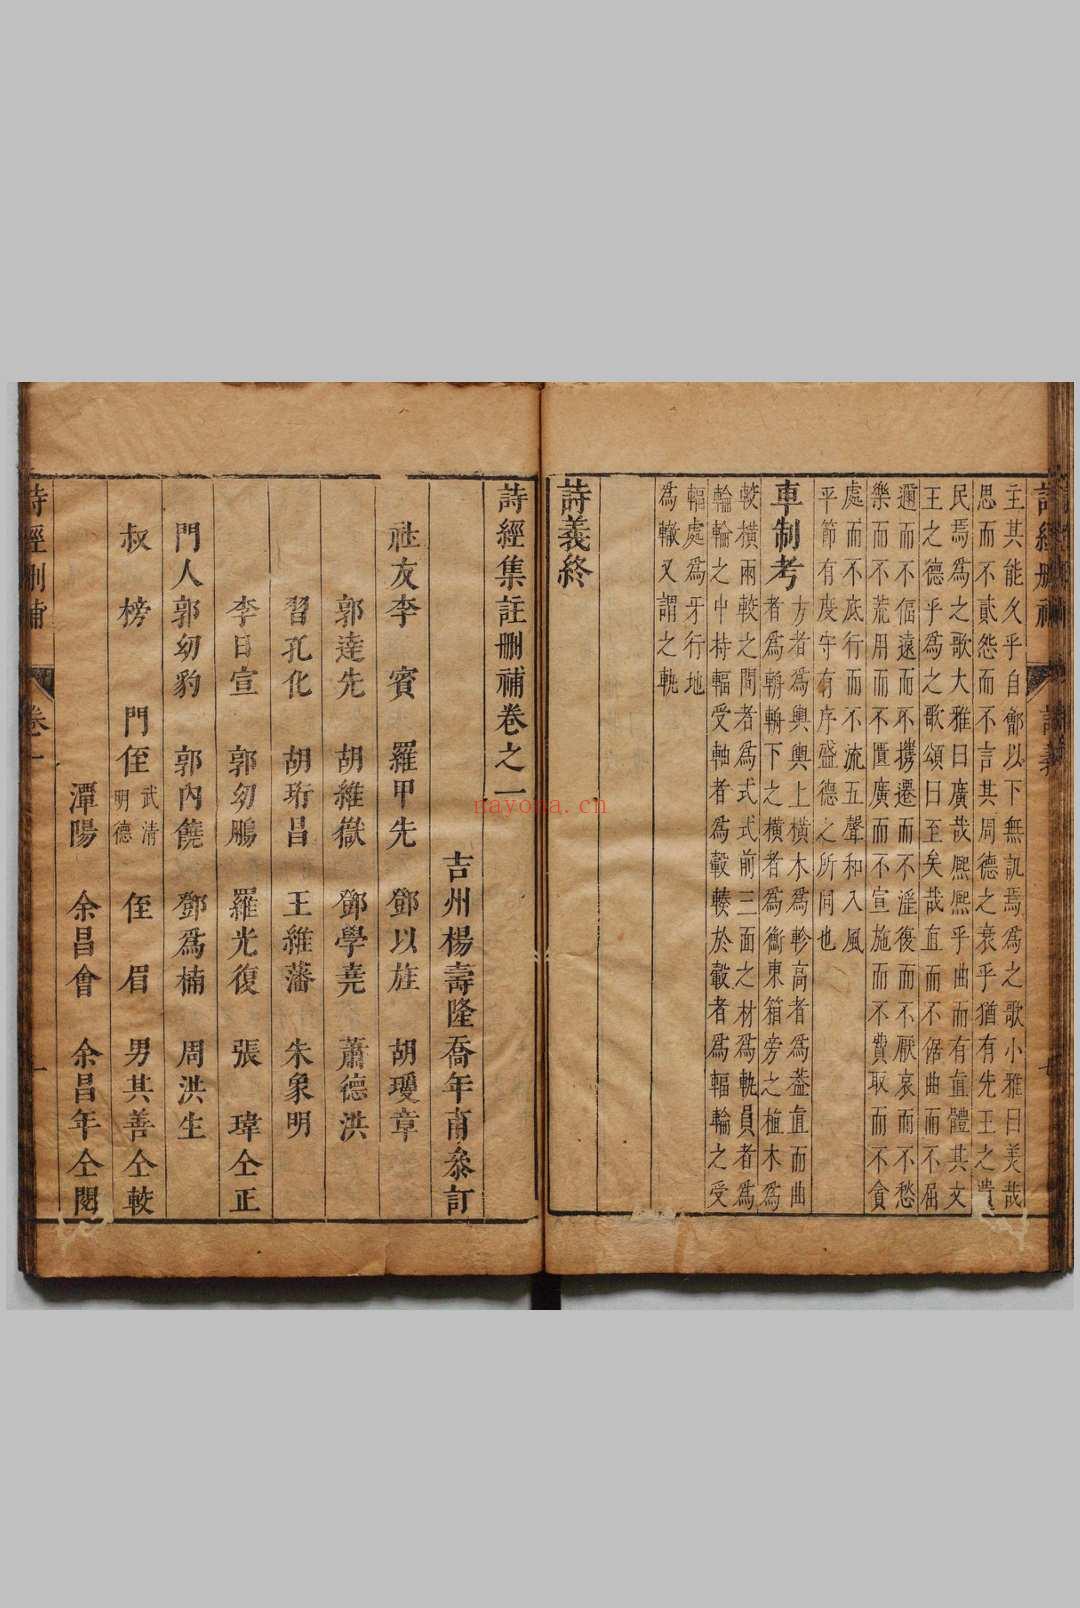 詩經刪補
詩義
七
主其能久乎自鄶以下無譏焉爲之歌小雅曰美哉
思而不貳怨而不言其周德之衰乎猶有先王之遺
民焉爲之歌大雅曰廣哉熈熈乎曲而有直體其文
王之德乎爲之歌頌曰至矣哉直而不倨曲而不屈
邇而不偪遠而不攜遷而不淫復而不厭哀而不愁
樂而不荒用而不匱廣而不宣施而不費取而不貪
處而不底行而不流五聲和八風
平節有度守有序盛德之所同也
車制考
方者爲輿輿上橫木爲軫高者爲葢直而曲
者爲輈輈下之橫者爲衡東箱旁之植木爲
較橫兩較之間者爲式式前三面之材爲軌員者爲
輪輪之中持輻受軸者爲轂輳於轂者爲輻輪之受
輻處爲牙行地
爲轍又謂之軌
詩義終
詩經集註刪補卷之一
吉州楊壽隆喬年甫叅訂
社友李賓 羅甲先 鄧以旌 胡瓊章
郭逹先 胡維嶽 鄧學堯 蕭德洪
習孔化 胡珩昌 王維藩 朱象明
李日宣 郭幼鵬 羅光復 張瑋仝正
門人郭幼豹 郭內饒 鄧爲楠 周洪生
叔榜 門侄武清 明德 侄眉 男其善仝較
潭陽 余昌會 余昌年仝閱
詩經刪補
卷一
一
nayona.cn